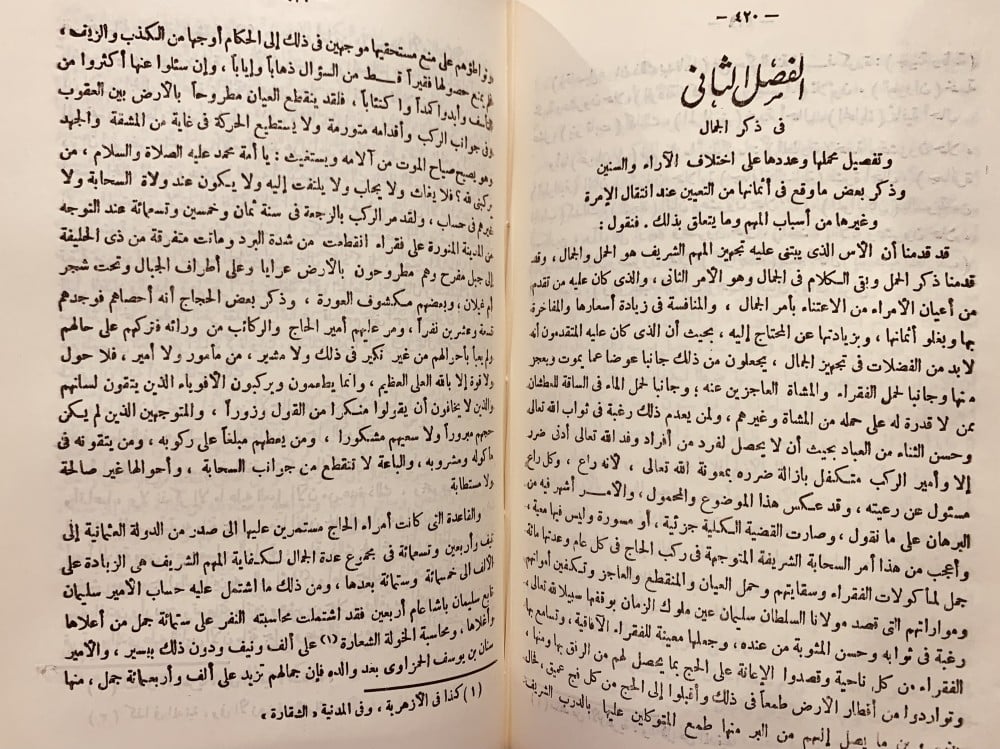 — ٤٢٠ —
الفصل الثانى
فى ذكر الجمال
وتفصيل محملها وعددها على اختلاف الآراء والسنين
وذكر بعض ما وقع فى أثمانها من التعيين عند انتقال الإمرة
وغيرها من أسباب المهم وما يتعلق بذلك . فنقول :
قد قدمنا أن الأس الذى يبتنى عليه تجهيز المهم الشريف هو الحمل والجمال ، وقد
قدمنا ذكر الحمل وبقى الكلام فى الجمال وهو الأمر الثانى ، والذى كان عليه من تقدم
من أعيان الأمراء من الاعتناء بأمر الجمال ، والمنافسة فى زيادة أسعارها والمفاخرة
بها ويغلو أثمانها ، وبزيادتها عن المحتاج إليه ، بحيث أن الذى كان عليه المتقدمون أنه
لابد من الفضلات فى تجهيز الجمال ، يجعلون من ذلك جانبا عوضا عما يموت ويعجز
منها وجانبا لحمل الفقراء والمشاة العاجزين عنه ؛ وجانبا لحمل الماء فى الساقة للعطشان
بمن لا قدرة له على حمله من المشاة وغيرهم ، ولمن يعدم ذلك رغبة فى ثواب الله تعالى
وحسن الثناء من العباد بحيث أن لا يحصل لفرد من أفراد وفد الله تعالى أدنى ضرر
إلا وأمير الركب متكفل بازالة ضرره بمعونة الله تعالى ، لأنه راع ، وكل راع
مسئول عن رعيته ، وقد عكس هذا الموضوع والمحمول ، والأمر أشهر فيه من
البرهان على ما نقول ، وصارت القضية الكلية جزئية ، أو مسورة وليس فيها معية ،
وأعجب من هذا أمر السحابة الشريفة المتوجهة فى ركب الحاج فى كل عام وعدتها مائة
جمل لمأكولات الفقراء وسقايتهم وحمل العيان والمنقطع والعاجز وتكفين أمواتهم
ومواراتهم التى قصد مولانا السلطان سليمان عين ملوك الزمان بوقفها سبيلا لله تعالى ،
رغبة فى ثوابه وحسن المثوبة من عنده ، وجعلها معينة للفقراء الآفاقية ، وتسامع بها
الفقراء من كل ناحية وقصدوا الإعانة على الحج بما يحصل لهم من الرفق بها ومنها ،
وتواردوا من أقطار الأرض طمعاً فى ذلك وأقبلوا إلى الحج من كل فج عميق ،
ما يصل إليهم من البر منها طمع المتوكلين عليها بالدرب الشريف
على منع مستحقيها موجهين فى ذلك إلى الحكام أوجها من الكذب والزيف ،
حصولها فقيراً قسط من السؤال ذهاباً وإياباً ، وإن سئلوا عنها أكثروا من
التأسف وأبدوا كمداً واكتئاباً ، فلقد ينقطع العيان مطروحاً بالأرض بين العقوب
وفى جوانب الركب وأقدامه متورمة ولا يستطيع الحركة فى غاية من المشقة والجهد
وهو يصيح صياح الموت من آلامه ويستغيث : يا أمة محمد عليه الصلاة والسلام ، من
يركبنى لله ؟ فلا يغاث ولا يجاب ولا يلتفت إليه ولا يكون عند ولاة السحابة ولا
غيرهم فى حساب ، ولقد مر الركب بالرجعة فى سنة ثمان وخمسين وتسعمائة عند التوجه
من المدينة المنورة على فقراء انقطعت من شدة البرد وماتت متفرقة من ذى الحليفة
إلى جبل مفرح وهم مطروحون بالأرض عرايا وعلى أطراف الجبال وتحت شجر
أم غيلان ، وبعضهم مكشوف العورة ، وذكر بعض الحجاج أنه أحصاهم فوجدهم
تسعة وعشرين نفراً ، ومر عليهم أمير الحاج والركائب من ورائه فتركهم على حالهم
ولم يعبأ بأحوالهم من غير نكير فى ذلك ولا مشير ، من مأمور ولا أمير ، فلا حول
ولا قوة إلا بالله العلى العظيم ، وانما يطعمون ويركبون الأقوياء الذين يتقون لسانهم
والذين لا يخافون أن يقولوا منكرا من القول وزوراً ، والمتوجهين الذين لم يكن
حجهم مبروراً ولا سعيهم مشكورا ، ومن يعطهم مبلغاً على ركوبه ، ومن يتقونه فى
مأكوله ومشروبه ، والباعة لا تنقطع من جوانب السحابة ، وأحوالها غير صالحة
ولا مستطابة
والقاعدة التى كانت أمراء الحاج مستمرين عليها الى صدر من الدولة العثمانية إلى
نيف وأربعين وتسعمائة فى مجموع عدة الجمال لكفاية المهم الشريف هى الزيادة على
الألف الى خمسمائة وستمائة بعدها ، ومن ذلك ما اشتمل عليه حساب الأمير سليمان
تابع سليمان باشا عام أربعين فقد اشتملت محاسبته النفر على ستمائة جمل من أعلاها
وأغلاها ، ومحاسبة الخولة الشعارة (١) على ألف ونيف ودون ذلك بيسير ، والأمير
سنان بن يوسف الحمزاوى بعد والده فإن جمالهم تزيد على ألف وأربعمائة جمل ، منها
(١) كذا فى الأزهرية ، وفى المدنية « الشقارة »